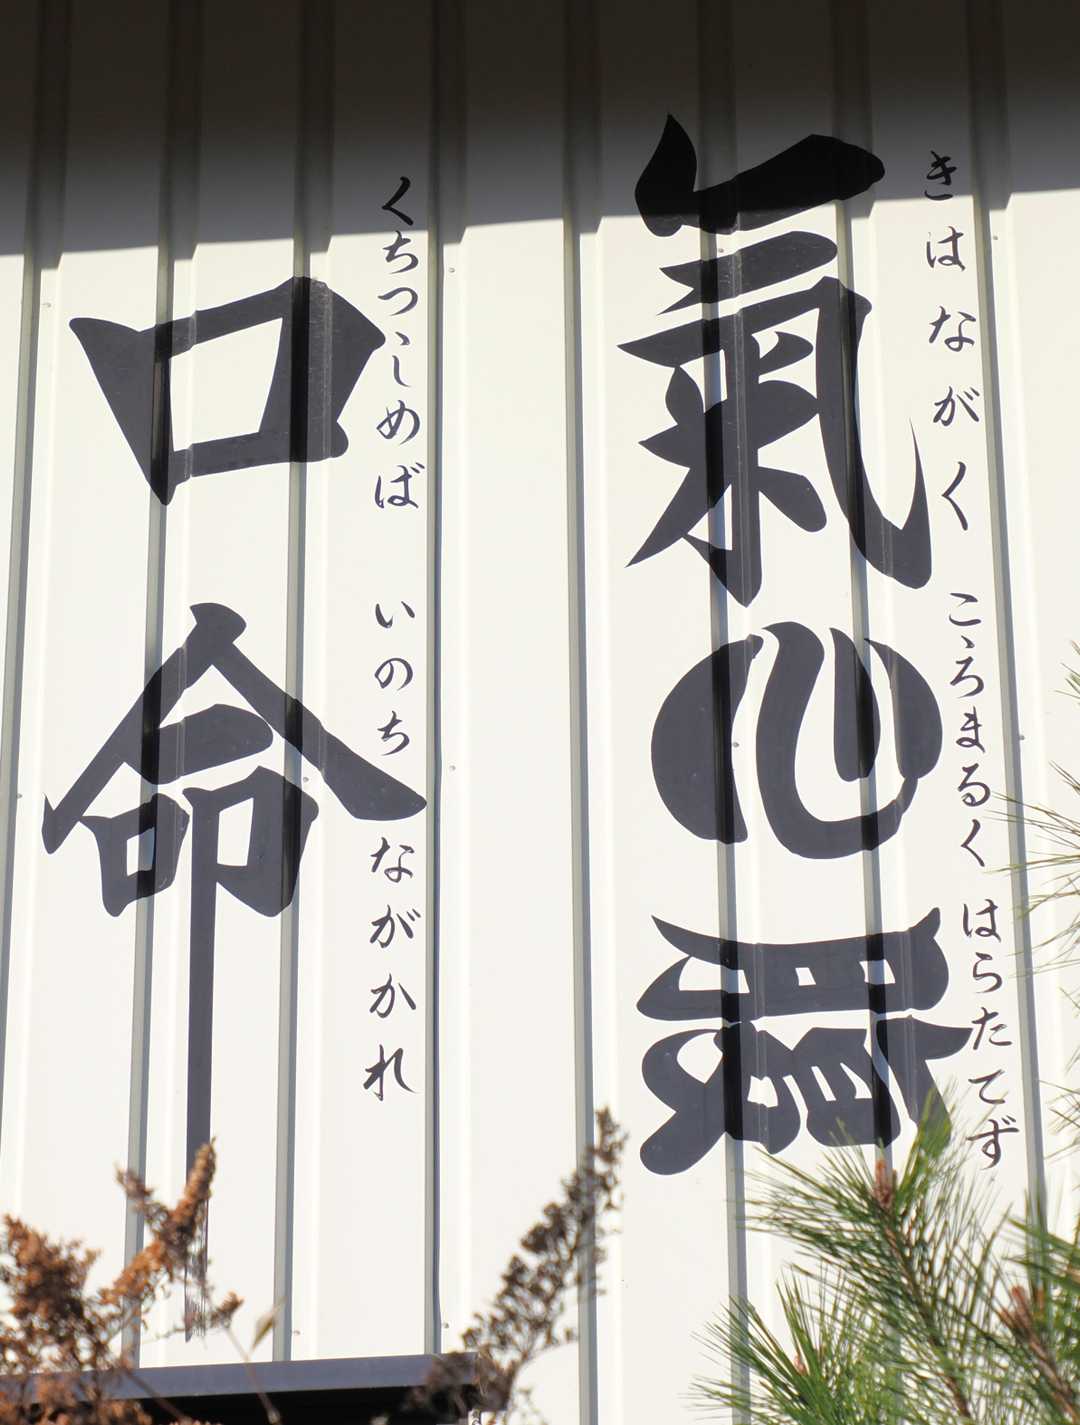 きはながく こゝろまるく はらたてず
氣心腹
くちつゝしめば いのち ながかれ
口命